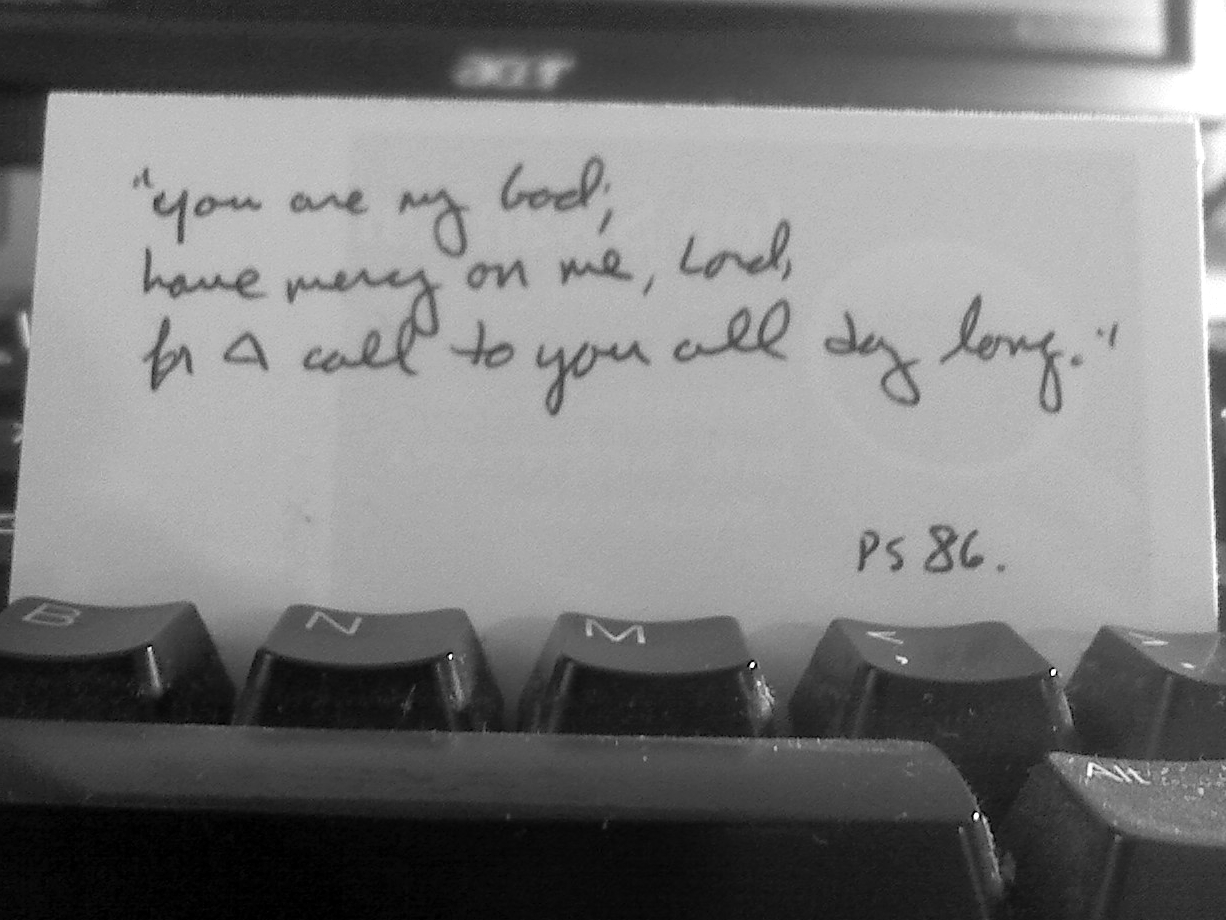 acer
"you are my God;
have mercy on me, Lord,
for I call to you all day long."
PS 86.
B N M < , > .
Alt